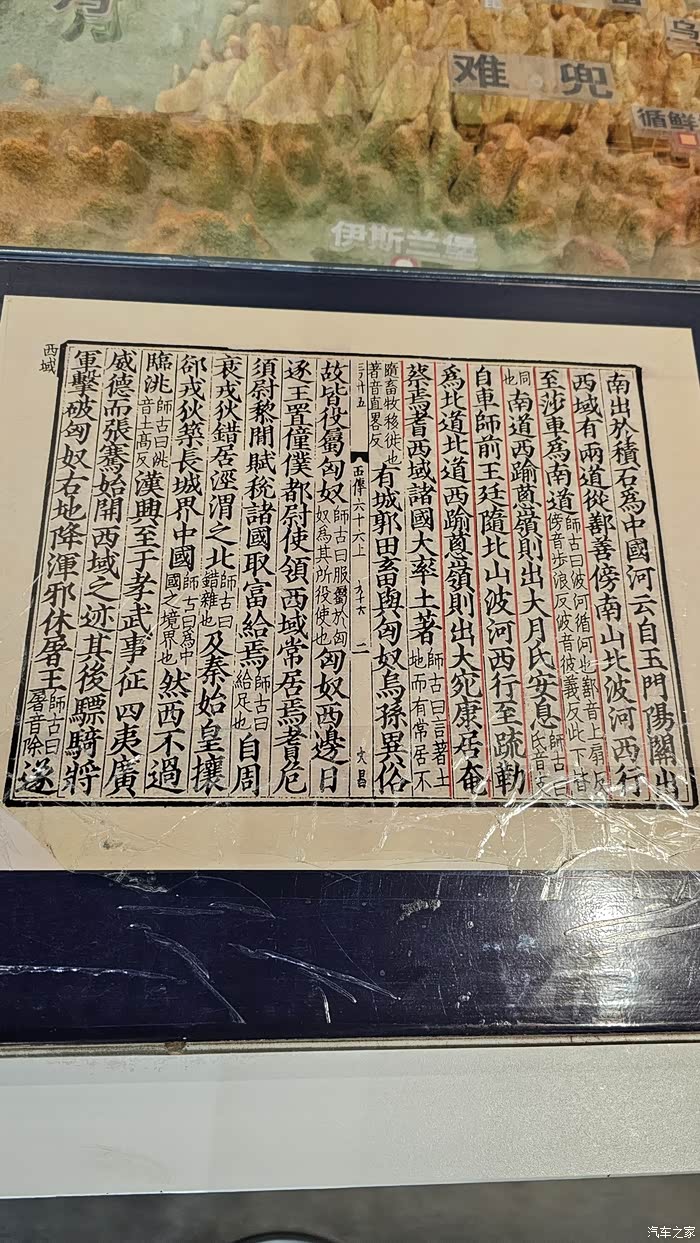 难兜
乌
循鲜
伊斯兰堡
南出於積石爲中國河云自玉門陽關出
西域有兩道從鄯善傍南山北波河西行
至莎車爲南道師古曰波河循河也鄯音上扇反傍音步浪反波音彼義反此下皆
同也南道西踰葱嶺則出大月氏安息師古曰氏音支
自車師前王廷隨北山波河西行至疏勒
爲北道北道西踰葱嶺則出大宛康居奄
蔡焉耆西域諸國大率土著師古曰言著土地而有常居不
隨畜牧移徙也著音直畧反有城郭田畜與匈奴烏孫異俗
西傳六十六上 二 文昌
故皆役屬匈奴師古曰服屬於匈奴爲其所役使也匈奴西邊日
逐王置僮僕都尉使領西域常居焉耆危
須尉黎間賦稅諸國取富給焉師古曰給足也自周
衰戎狄錯居涇渭之北師古曰錯雜也及秦始皇攘
卻戎狄築長城界中國師古曰爲中國之境界也然西不過
臨洮師古曰洮音土高反漢興至于孝武事征四夷廣
威德而張騫始開西域之迹其後驃騎將
軍擊破匈奴右地降渾邪休屠王師古曰屠音除遂
西域
汽车之家